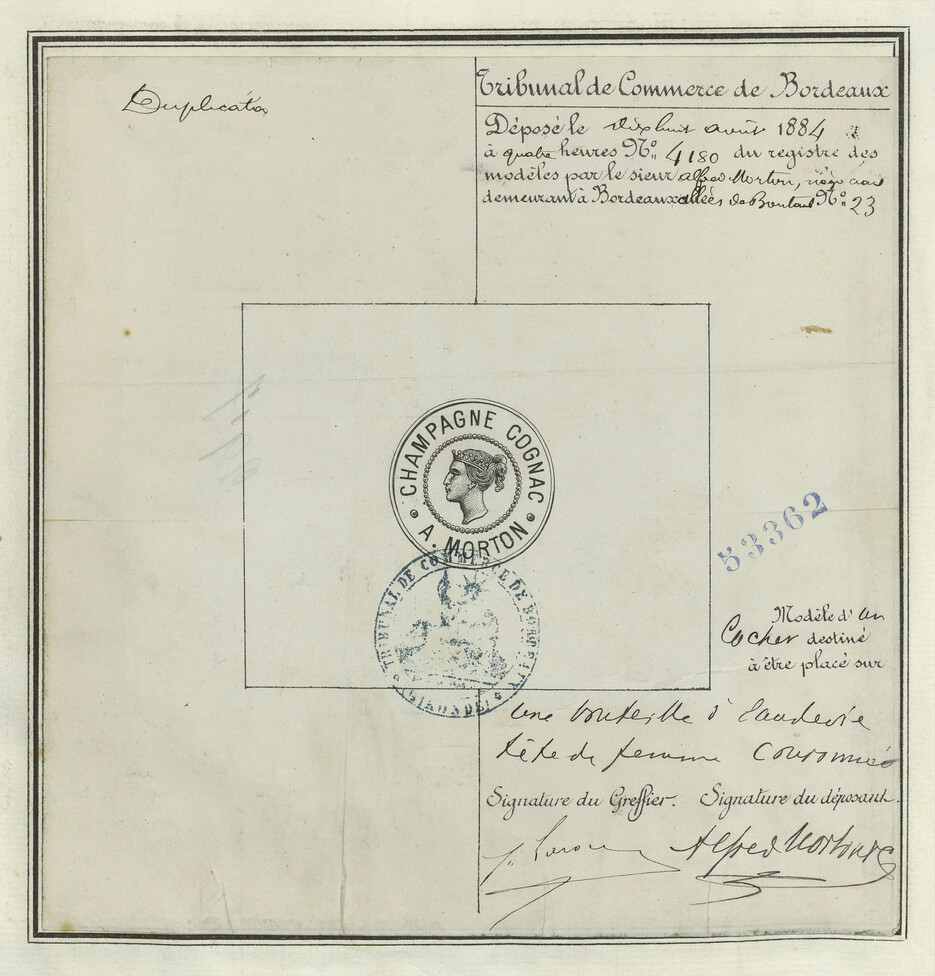 Duplicata
Tribunal de Commerce de Bordeaux
Déposé le dix huit août 1884
à quatre heures Nº 4180 du registre des
modèles par le sieur alfred Morton, négociant
demeurant à Bordeaux allées de Boutaut Nº 23
CHAMPAGNE COGNAC
A. MORTON
TRIBUNAL DE COMMERCE DE BORDEAUX
(GIRONDE)
53362
Modèle d' un
Cachet destiné
à être placé sur
une bouteille d'eau de vie
tête de femme couronnée
Signature du Greffier. Signature du déposant.
Alfred Morton